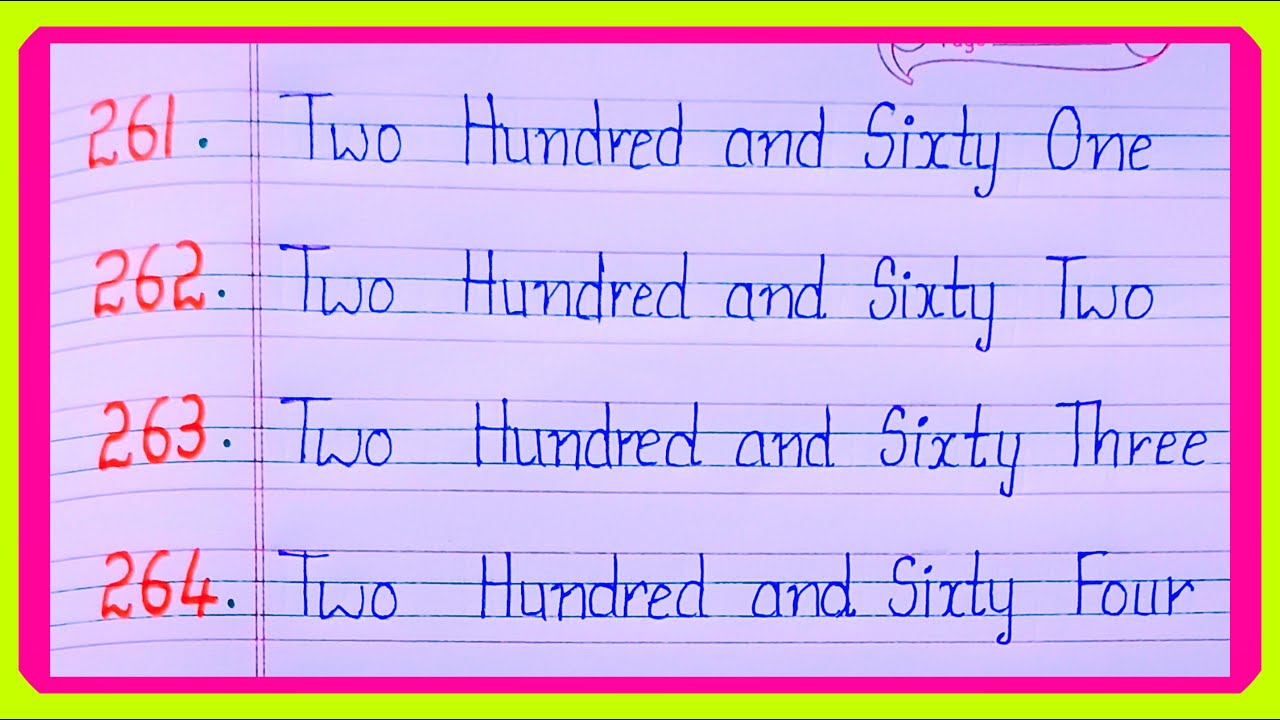 Page
261. Two Hundred and Sixty One
262. Two Hundred and Sixty Two
263. Two Hundred and Sixty Three
264. Two Hundred and Sixty Four